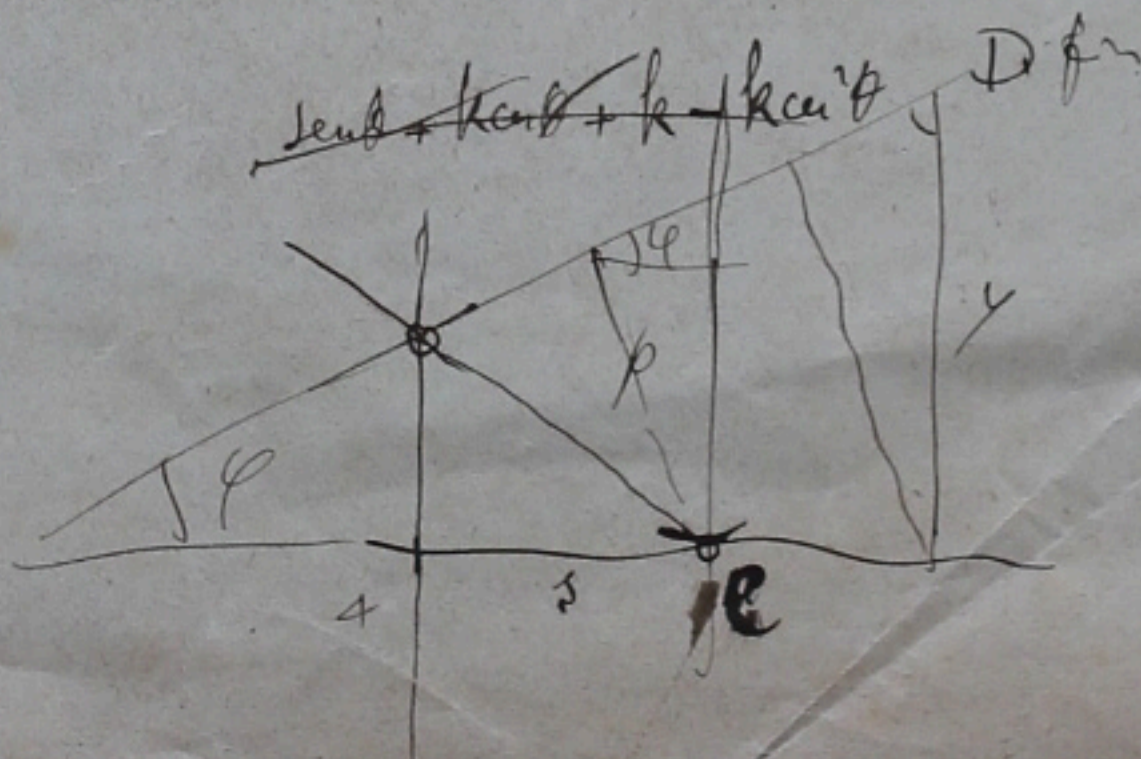 senθ + k cosθ + k - k cos²θ
D
φ
y
φ
4
s
C